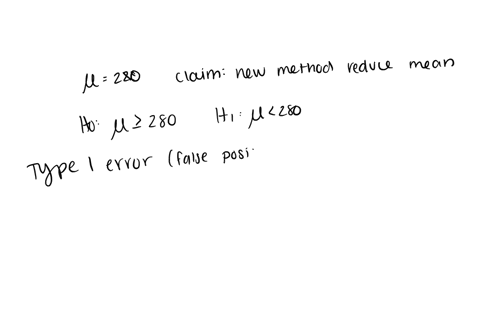 μ = 280 claim: new method reduce mean
H0: μ ≥ 280 H1: μ < 280
Type 1 error (false posi